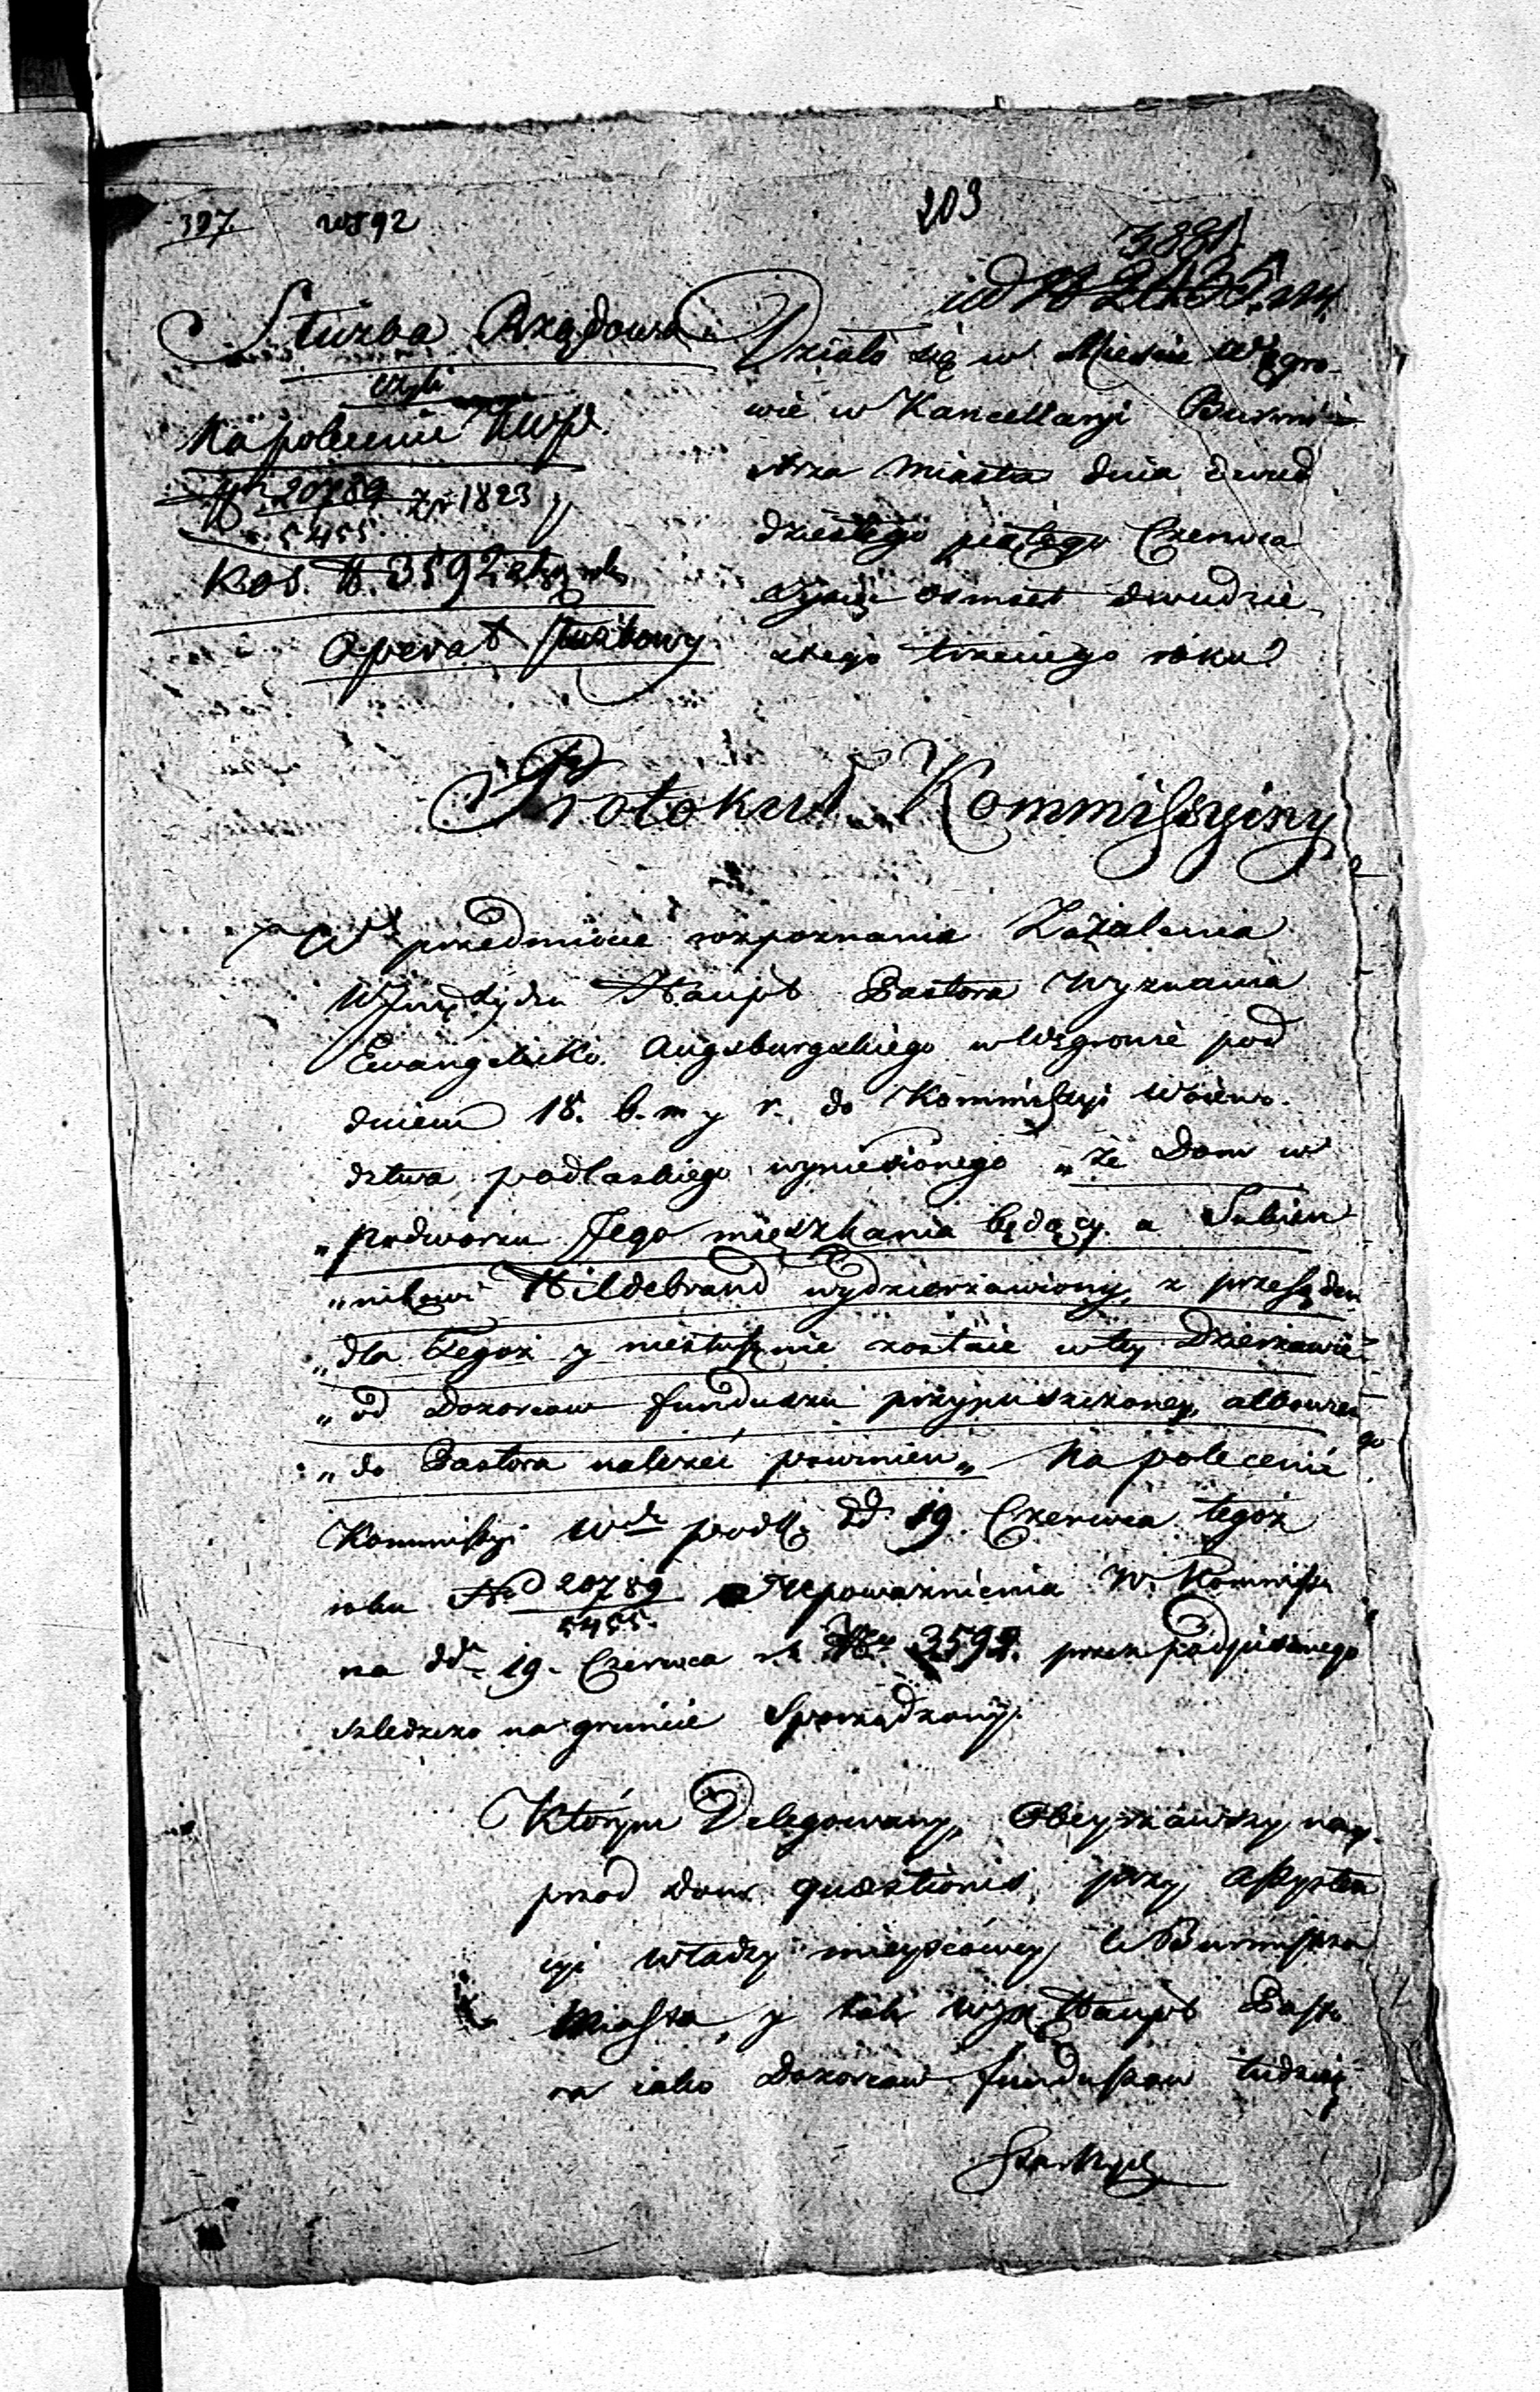 307. 203
Służba Rządowa
czyli
Na polecenie KWP.
Nr 20789 / 5455 z r. 1823
Kos. N. 3592
Operat służbowy
Działo się w Mieście Węgro-
wie w Kancellaryi Burmi-
strza Miasta dnia dwud
dziestego piątego Czerwca
tysiąc osmset dwudzie-
stego trzeciego roku
Protokuł Kommissyiny
W przedmiocie rozpoznania Zażalenia
Haupt Pastora Wyznania
Ewangelicko Augsburgskiego w Węgrowie pod
dniem 18. b. m y r. do Kommissyi Woiewo-
dztwa podlaskiego wyniesionego „że Dom w
„Podworzu Jego mieszkania będący a Sukien
„nikowi Hildebrand wydzierżawiony, z przesądem
„dla Tegoż y niesłusznie zostaie w tey Dzierzawie
„od Dozorcow funduszu przypuszczoney, albowiem
„do Pastora należeć powinien„ Na polecenie
Kommissyi Wdz podl. dd 19 Czerwca tegoż
roku Nro 20789 / 5455. Upoważnienia W. Kommissa
na dd. 19. Czerwca r. b. Nro 3592. przez podpisanego
szledczo na gruncie Sporządzony.
Którym Delegowany, Obeyrzawszy nay
przod dom questionis, przy assysten
cyi władzy mieyscowey W Burmistrza
Miasta, y tak Haupt Pasto
ra iako Dozorcow funduszow tudzież